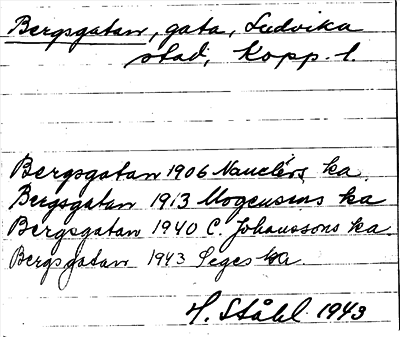 Bergsgatan, gata, Ludvika
stad, Kopp. l.
Bergsgatan 1906 Nauclérs ka.
Bergsgatan 1913 Mogensens ka
Bergsgatan 1940 C. Johanssons ka.
Bergsgatan 1943 Seges ka
H. Ståhl 1943